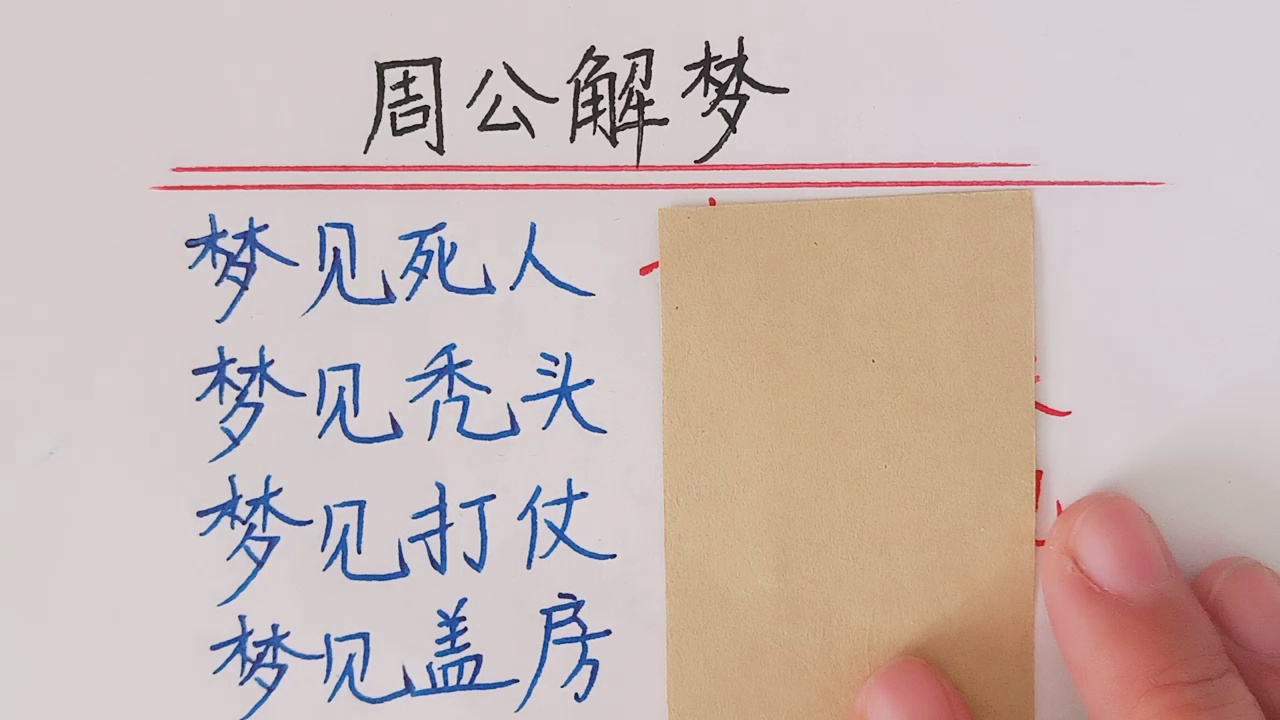 周公解梦
梦见死人
梦见秃头
梦见打仗
梦见盖房